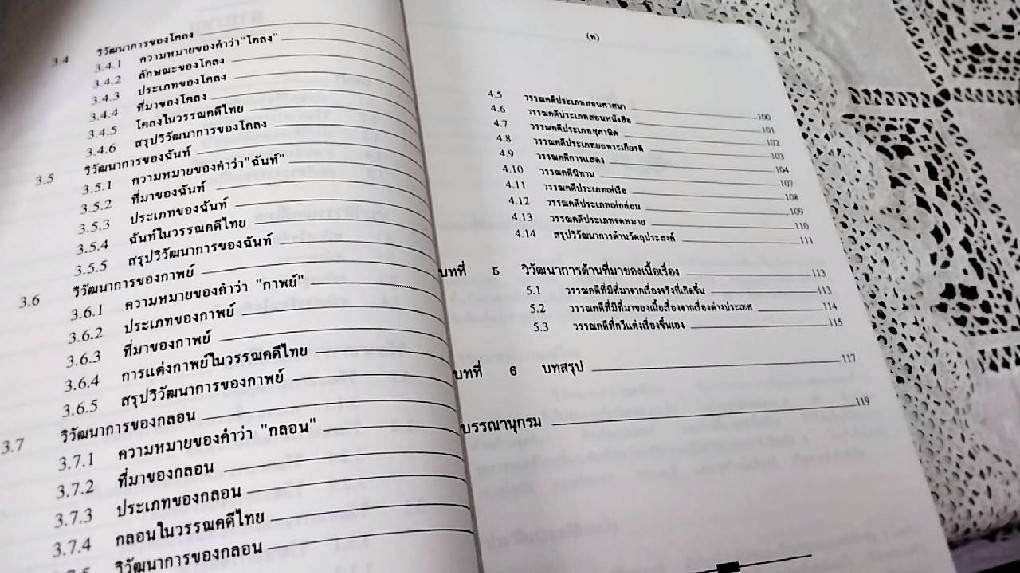 3.4 วิวัฒนาการของโคลง
3.4.1 ความหมายของคำว่า"โคลง"
3.4.2 ลักษณะของโคลง
3.4.3 ประเภทของโคลง
3.4.4 ที่มาของโคลง
3.4.5 โคลงในวรรณคดีไทย
3.4.6 สรุปวิวัฒนาการของโคลง
3.5 วิวัฒนาการของฉันท์
3.5.1 ความหมายของคำว่า"ฉันท์"
3.5.2 ที่มาของฉันท์
3.5.3 ประเภทของฉันท์
3.5.4 ฉันท์ในวรรณคดีไทย
3.5.5 สรุปวิวัฒนาการของฉันท์
3.6 วิวัฒนาการของกาพย์
3.6.1 ความหมายของคำว่า "กาพย์"
3.6.2 ประเภทของกาพย์
3.6.3 ที่มาของกาพย์
3.6.4 การแต่งกาพย์ในวรรณคดีไทย
3.6.5 สรุปวิวัฒนาการของกาพย์
3.7 วิวัฒนาการของกลอน
3.7.1 ความหมายของคำว่า "กลอน"
3.7.2 ที่มาของกลอน
3.7.3 ประเภทของกลอน
3.7.4 กลอนในวรรณคดีไทย
วิวัฒนาการของกลอน
4.5 วรรณคดีประเภทสอนศาสนา 100
4.6 วรรณคดีประเภทสอนหนังสือ 101
4.7 วรรณคดีประเภทสุภาษิต 102
4.8 วรรณคดีประเภทยอพระเกียรติ 103
4.9 วรรณคดีการแสดง 104
4.10 วรรณคดีนิทาน 107
4.11 วรรณคดีประเภทเห่เรือ 108
4.12 วรรณคดีประเภทเห่กล่อม 109
4.13 วรรณคดีประเภทจดหมาย 110
4.14 สรุปวิวัฒนาการด้านวัตถุประสงค์ 111
บทที่ 5 วิวัฒนาการด้านที่มาของเนื้อเรื่อง 113
5.1 วรรณคดีที่มีที่มาจากเรื่องจริงที่เกิดขึ้น 113
5.2 วรรณคดีที่มีที่มาของเนื้อเรื่องจากเรื่องต่างประเทศ 114
5.3 วรรณคดีที่กวีแต่งเรื่องขึ้นเอง 115
บทที่ 6 บทสรุป 117
บรรณานุกรม 119